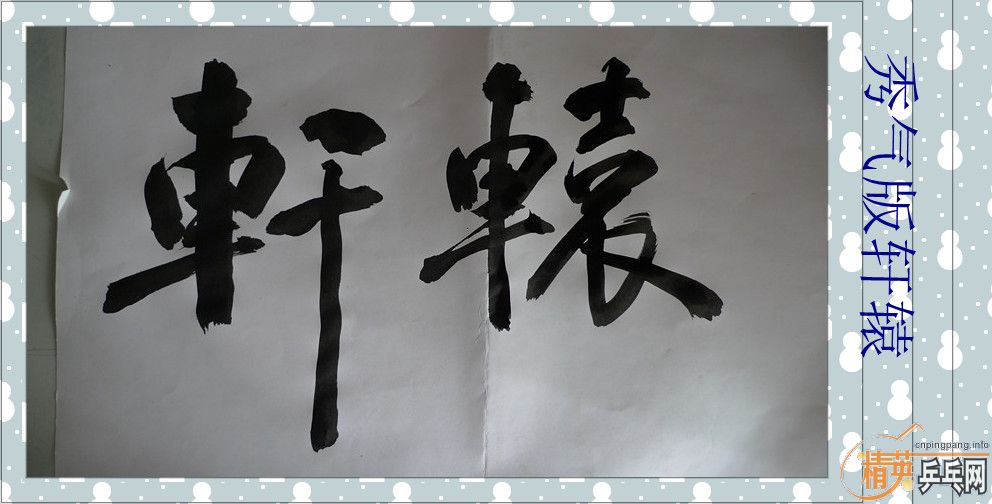 軒轅
秀气版轩辕
cnpingpang.info
精英乒乓网